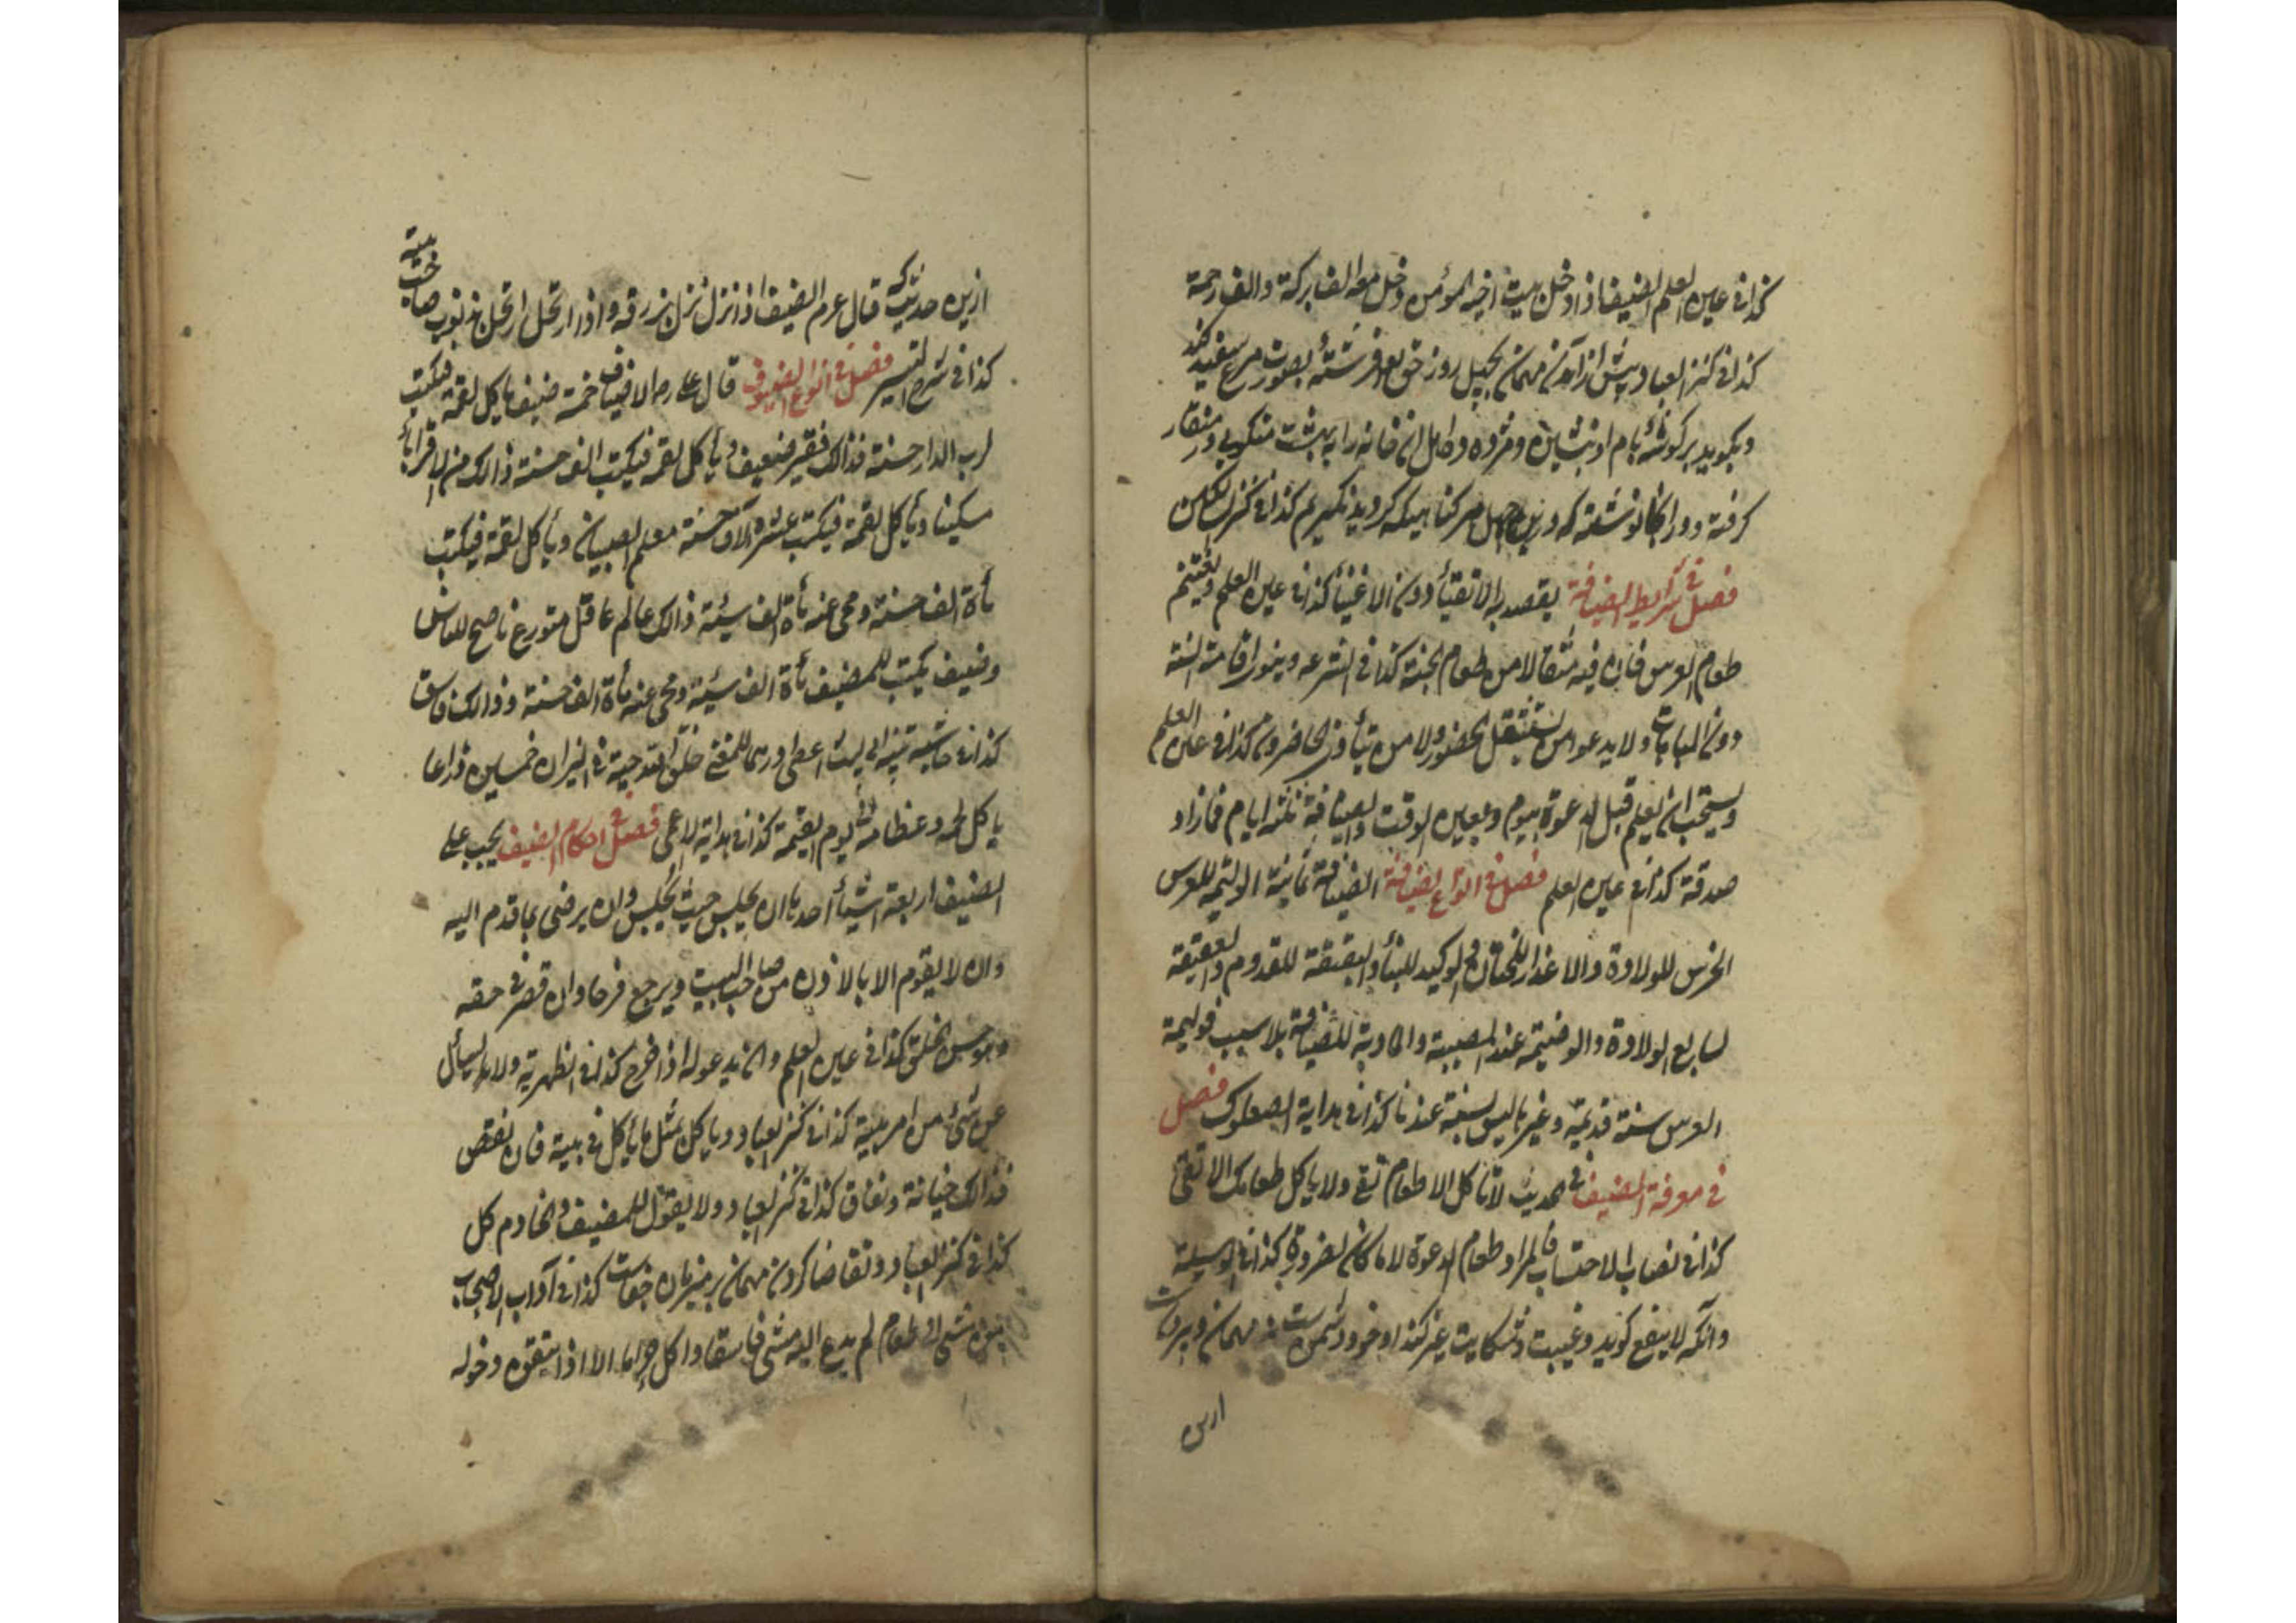 كذا في عين العلم الضيف اذا دخل بيت اخيه المؤمن دخل معه الف بركة والف رحمة
كذا في كنز العباد پيش از آمدن مهمان بچهل روز حق تع فرشتهٔ بصورت مرغ سفيد كند
وبگويد بر گوشهٔ بام او بنشين ومژده ده اهل آن خانه را به بهشت منقار
گرفته ودر انجا نوشته كه درين چهل هر گناهيكه كرديد نگيرم كذا في كنز
فصل في شرايط الضيافة يقصد به الاتقيأ دون الاغنيأ كذا في عين العلم ويغتنم
طعام العرس فان فيه مثقالا من طعام الجنة كذا في الشرعه وينوي اقامة السنة
دون المباهات ولا يدعو من يستثقل الحضور ولا من يتأذى الحاضرون كذا في عين العلم
ويستحب ان يعلم قبل الدعوة بيوم وبعين الوقت والضيافة ثلثه ايام فما زاد
صدقة كذا في عين العلم فصل في انواع الضيافة الضيافة ثمانية الوليمة للعرس
الخرس للولادة والاعذار للختان والوكيرة للبنأ والنقيعة للقدوم والعقيقة
لسابع الولادة والوضيمة عند المصيبة والمادبة للضيافة بلا سبب فوليمة
العرس سنة قديمة وغيرها ليس بسنة عندنا كذا في هداية الصعلوك فصل
في معرفة الضيف في الحديث لا تأكل الا طعام تقي ولا ياكل طعامك الا تقي
كذا في نصاب الاحتساب فالمراد طعام الدعوة لا ما كان لضرورة كذا في الوسيلة
وانكه لا ينفع گويد وغيبت وشكايت غير كند او خود دشمن ست نه مهمان وبيرون
ازين
ازين حديثكه قال عم الضيف اذا نزل نزل برزقه واذا ارتحل ارتحل بذنوب صاحب بيته
كذا في شرح التيسير فصل في انواع الضيوف قال عليه م الاضياف خمسة ضيف ياكل لقمة فيكتب
لرب الدار حسنة فذالك فقير ضعيف ويأكل لقمه فيكتب الف حسنة ذالك من الاقربأ
مسكينا ويأكل لقمة فيكتب عشرة آلاف حسنة معلم الصبيان ويأكل لقمة فيكتب
مأة الف حسنة ومحى عنه مأة الف سيئة ذالك عالم عاقل متورع ناصح للناس
وضيف يكتب للمضيف مأة الف سيئة ومحى عنه مأة الف حسنة وذالك فاسق
كذا في حاشيه تنبيه ابي ليث اعطى درهما للمغني خلق الله حية في النيران خمسين ذراعا
ياكل لحمه وعظامه الى يوم القيمة كذا في هداية الاعمى فصل في احكام الضيف يجب على
الضيف اربعة اشيأ احدها ان يجلس حيث يجلس وان يرضى بما قدم اليه
وان لا يقوم الا بالاذن من صاحب البيت ويرجع فرحا وان قصر في حقه
وهو حسن الخلق كذا في عين العلم وان يدعو له اذا خرج كذا في الظهرية ولا يسأل
عن شئ من امر بيته كذا في كنز العباد وياكل مثل ما يأكل في بيته فان نقص
فذالك خيانة ونفاق كذا في كنز العباد ولا يقول للمضيف والخادم كل
كذا في كنز العباد وتقاضا كردن مهمان بر ميزبان جفاست كذا في آداب الاصحاب
مشى الى طعام لم يدع اليه مشى فاسقا واكل حراما الا اذا تيقن دخوله